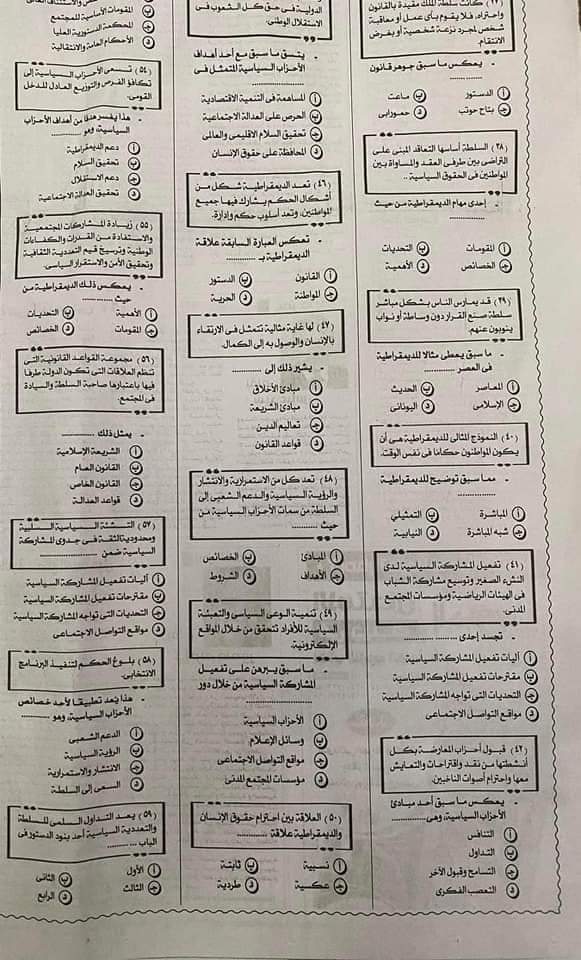 (٣٧) كانت سلطة الملك مقيدة بالقانون
واحترامه، فلا يقوم بأى عمل أو معاقبة
شخص لمجرد نزعة شخصية أو بغرض
الانتقام.
- يعكس ما سبق جوهر قانون
............
أ الدستور
ب ماعت
ج بتاح حوتب
د حمورابى
(٣٨) السلطة أساسها التعاقد المبنى على
التراضى بين طرفى العقد والمساواة بين
المواطنين فى الحقوق السياسية ..
- إحدى مهام الديمقراطية من حيث
............
أ المقومات
ب التحديات
ج الخصائص
د الأهمية
(٣٩) قد يمارس الناس بشكل مباشر
سلطة صنع القرار دون وساطة أو نواب
ينوبون عنهم.
- ما سبق يعطى مثالا للديمقراطية
فى العصر ............
أ المعاصر
ب الحديث
ج الإسلامى
د اليونانى
(٤٠) النموذج المثالى للديمقراطية هى أن
يكون المواطنون حكاما فى نفس الوقت.
- مما سبق توضيح للديمقراطية
............
أ المباشرة
ب التمثيلي
ج شبه المباشرة
د النيابية
(٤١) تفعيل المشاركة السياسية لدى
النشء الصغير وتوسيع مشاركة الشباب
فى الهيئات الرياضية ومؤسسات المجتمع
المدنى.
- تجسد إحدى ............
أ آليات تفعيل المشاركة السياسية
ب مقترحات تفعيل المشاركة السياسية
ج التحديات التى تواجه المشاركة السياسية
د مواقع التواصل الاجتماعى
(٤٢) قبول أحزاب المعارضة بكل
أنشطتها من نقد واقتراحات والتعايش
معها واحترام أصوات الناخبين.
- يعكس ما سبق أحد مبادئ
الأحزاب السياسية، وهى ............
أ التنافس
ب التداول
ج التسامح وقبول الآخر
د التعصب الفكرى
الدولية فى حق كل الشعوب فى
الاستقلال الوطنى.
- يتفق ما سبق مع أحد أهداف
الأحزاب السياسية المتمثل فى
............
أ المساهمة فى التنمية الاقتصادية
ب الحرص على العدالة الاجتماعية
ج تحقيق السلام الاقليمى والعالمى
د المحافظة على حقوق الإنسان
(٤٦) تعد الديمقراطية شكل من
أشكال الحكم يشارك فيها جميع
المواطنين، وتعد أسلوب حكم وإدارة.
- تعكس العبارة السابقة علاقة
الديمقراطية بـ ............
أ القانون
ب الدستور
ج المواطنة
د الحرية
(٤٧) لها غاية مثالية تتمثل فى الارتقاء
بالإنسان والوصول به إلى الكمال.
- يشير ذلك إلى ............
أ مبادئ الأخلاق
ب مبادئ الشريعة
ج تعاليم الدين
د قواعد القانون
(٤٨) تعد كل من الاستمرارية والانتشار
والرؤية السياسية والدعم الشعبى إلى
السلطة من سمات الأحزاب السياسية من
حيث ............
أ المبادئ
ب الخصائص
ج الأهداف
د الشروط
(٤٩) تنمية الوعى السياسى والتعبئة
السياسية للأفراد تتحقق من خلال المواقع
الإلكترونية.
- ما سبق يبرهن على تفعيل
المشاركة السياسية من خلال دور
............
أ الأحزاب السياسية
ب وسائل الإعلام
ج مواقع التواصل الاجتماعى
د مؤسسات المجتمع المدنى
(٥٠) العلاقة بين احترام حقوق الإنسان
والديمقراطية علاقة ............
أ نسبية
ب ثابتة
ج عكسية
د طردية
ب المقومات الأساسية للمجتمع
ج المحكمة الدستورية العليا
د الأحكام العامة والانتقالية
(٥٤) تسعى الأحزاب السياسية إلى
تكافؤ الفرص والتوزيع العادل للدخل
القومى.
- هذا يفسر هدفا من أهداف الأحزاب
السياسية، وهو ............
أ دعم الديمقراطية
ب تحقيق السلام
ج دعم الاستقلال
د تحقيق العدالة الاجتماعية
(٥٥) زيادة المشاركات المجتمعية
والاستفادة من القدرات والكفاءات
الوطنية وترسيخ قيم التعددية الثقافية
وتحقيق الأمن والاستقرار السياسى.
- يعكس ذلك الديمقراطية من
حيث ............
أ الأهمية
ب التحديات
ج المقومات
د الخصائص
(٥٦) مجموعة القواعد القانونية التى
تنظم العلاقات التى تكون الدولة طرفا
فيها باعتبارها صاحبة السلطة والسيادة
فى المجتمع.
- يمثل ذلك ............
أ الشريعة الإسلامية
ب القانون العام
ج القانون الخاص
د قواعد العدالة
(٥٧) التنشئة السياسية السلبية
ومحدودية الثقة فى جدوى المشاركة
السياسية ضمن ............
أ آليات تفعيل المشاركة السياسية
ب مقترحات تفعيل المشاركة السياسية
ج التحديات التى تواجه المشاركة السياسية
د مواقع التواصل الاجتماعى
(٥٨) بلوغ الحكم لتنفيذ البرنامج
الانتخابى.
- هذا يعد تطبيقا لأحد خصائص
الأحزاب السياسية، وهو ............
أ الدعم الشعبى
ب الرؤية السياسية
ج الانتشار والاستمرارية
د السعى إلى السلطة
(٥٩) يعد التداول السلمى للسلطة
والتعددية السياسية أحد بنود الدستور فى
الباب ............
أ الأول
ب الثانى
ج الثالث
د الرابع